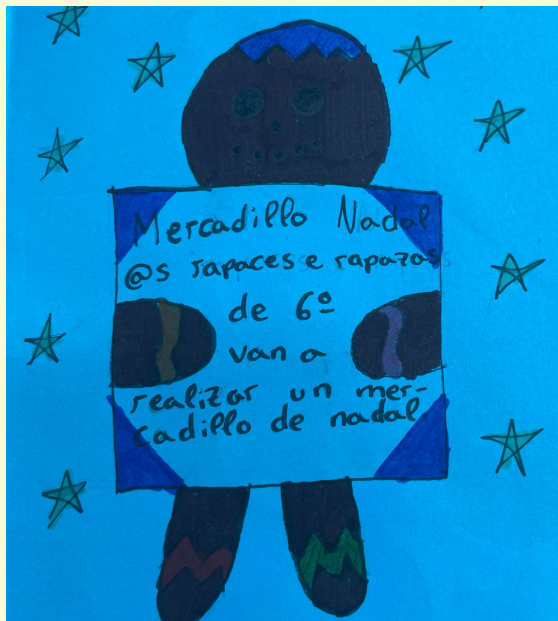 Mercadillo Nadal
@s rapaces e rapazas
de 6º
van a
realizar un mer-
cadillo de nadal.